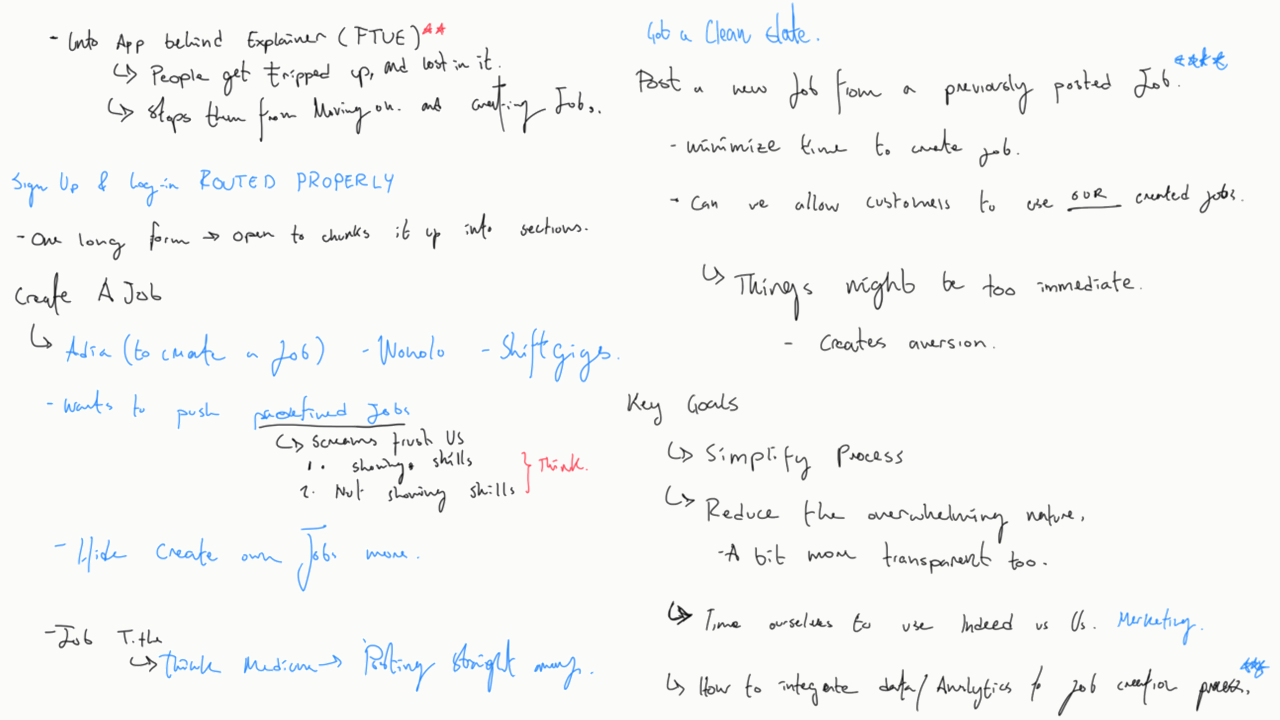 - Into App behind Explainer (FTUE)**
↳ People get tripped up, and lost in it.
↳ Stops them from Moving on. and creating Jobs.
Sign Up & Log-in ROUTED PROPERLY
- One long form → open to chunks it up into sections.
Create A Job
↳ Adia (to create a Job) - Wonolo - Shiftgigs.
- Wants to push predefined Jobs
↳ Screams trush Us
1. showing skills
2. Not showing skills } Think.
- Hide Create own Jobs more.
- Job Title
↳ Think Medium → Posting straight away.
Got a Clean slate.
Post a new Job from a previously posted Job. ****
- minimize time to create job.
- Can we allow customers to use OUR created jobs.
↳ Things might be too immediate.
- Creates aversion.
Key Goals
↳ Simplify Process
↳ Reduce the overwhelming nature.
- A bit more transparent too.
↳ Time ourselves to use Indeed vs Us. Marketing.
↳ How to integrate data/Analytics to job creation process. ***